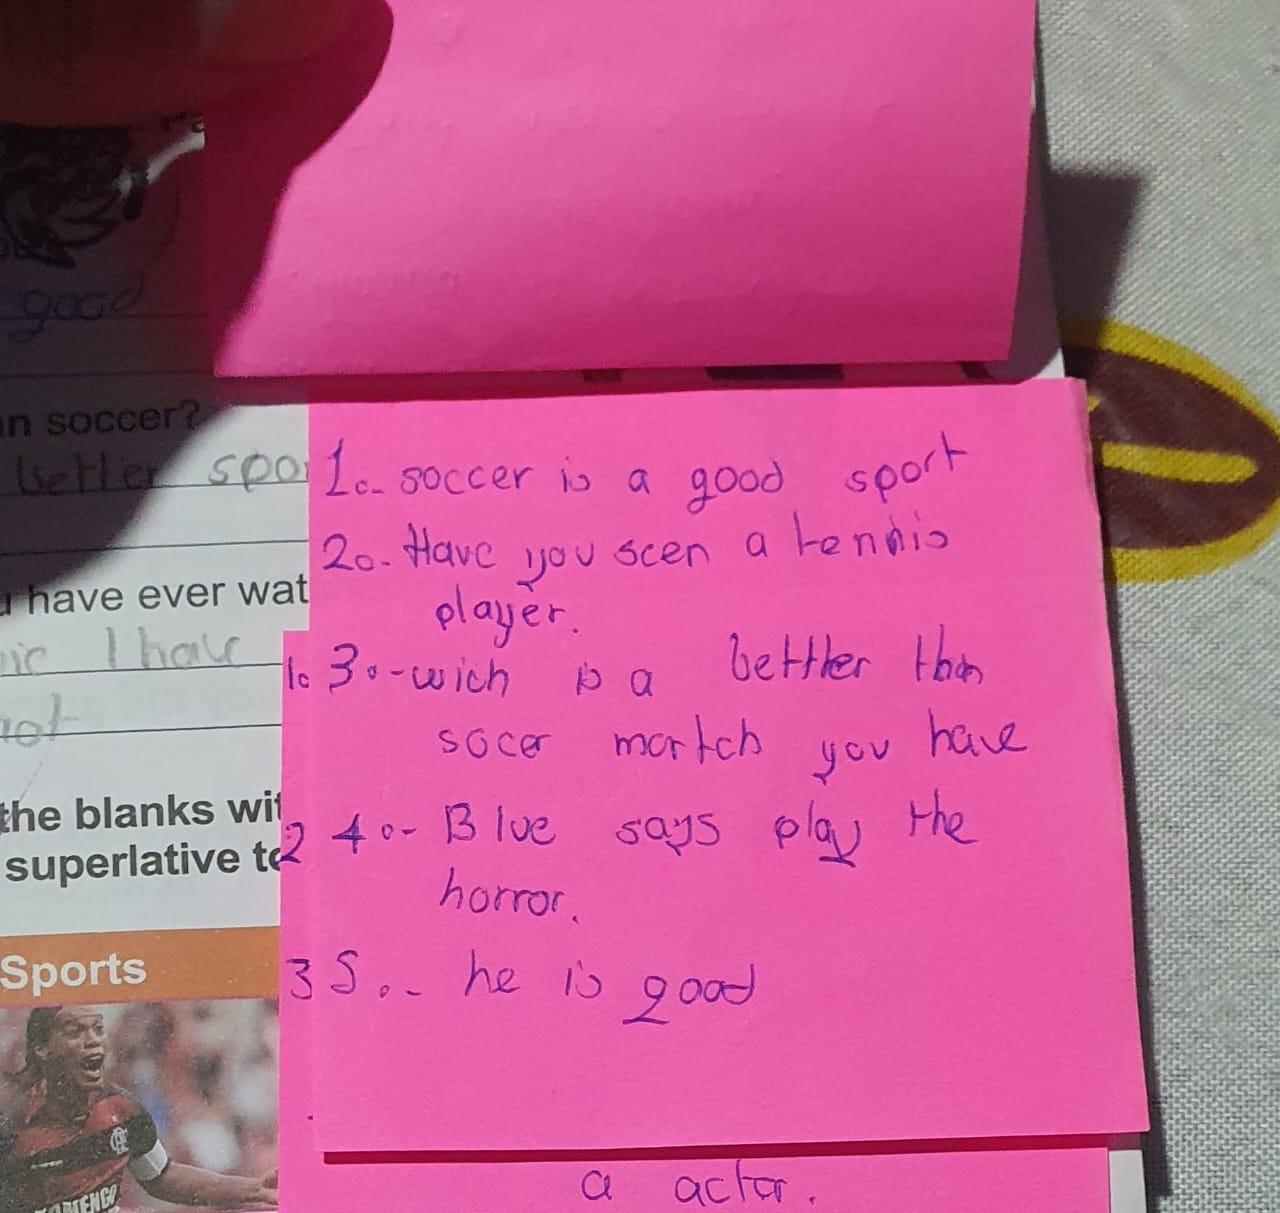 good
n soccer?
better spo
1.- soccer is a good sport
2.- Have you seen a tennis
player.
have ever wat
I have
not
1. 3.- wich is a bettler than
socer martch you have
the blanks wit
superlative to
2 4.- Blue says play the
horror.
Sports
3 5..- he is good
a actor.